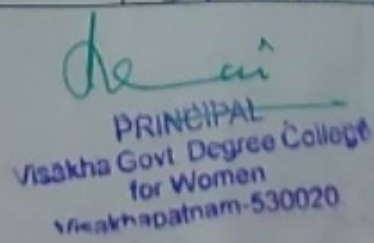 PRINCIPAL
Visakha Govt Degree College
for Women
Visakhapatnam-530020